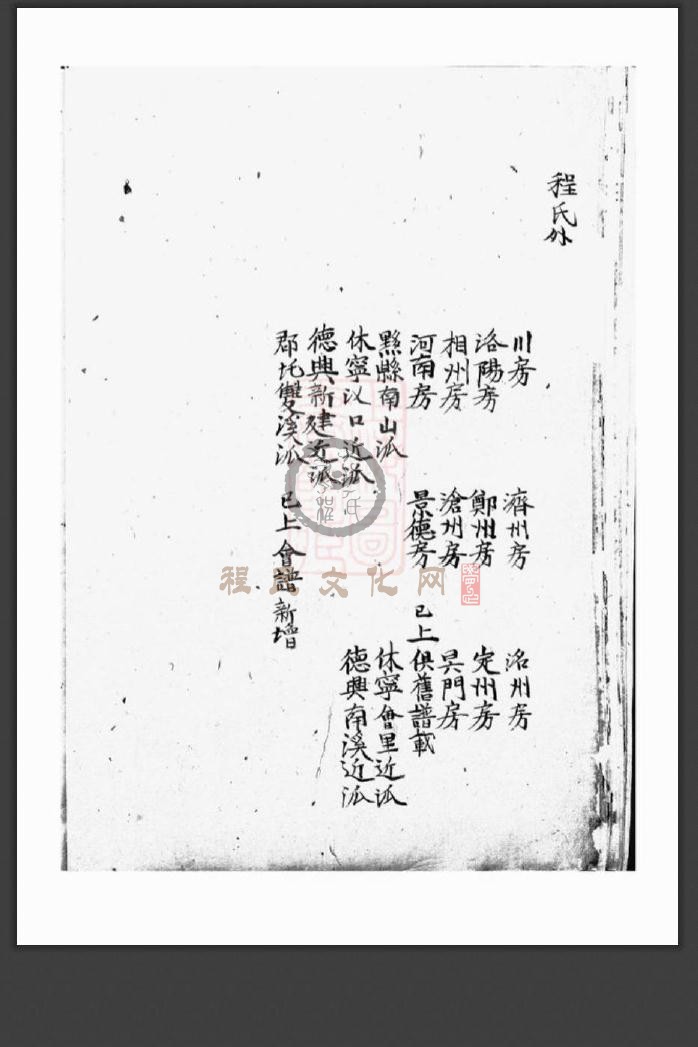 程氏外
川房　濟州房　洺州房
洛陽房　鄭州房　定州房
相州房　滄州房　吳門房
河南房　景德房　已上俱舊譜載
黟縣南山派　休寧會里近派
休寧汊口近派　德興南溪近派
德興新建近派
郡北雙溪派　已上會譜新增
程氏文化网